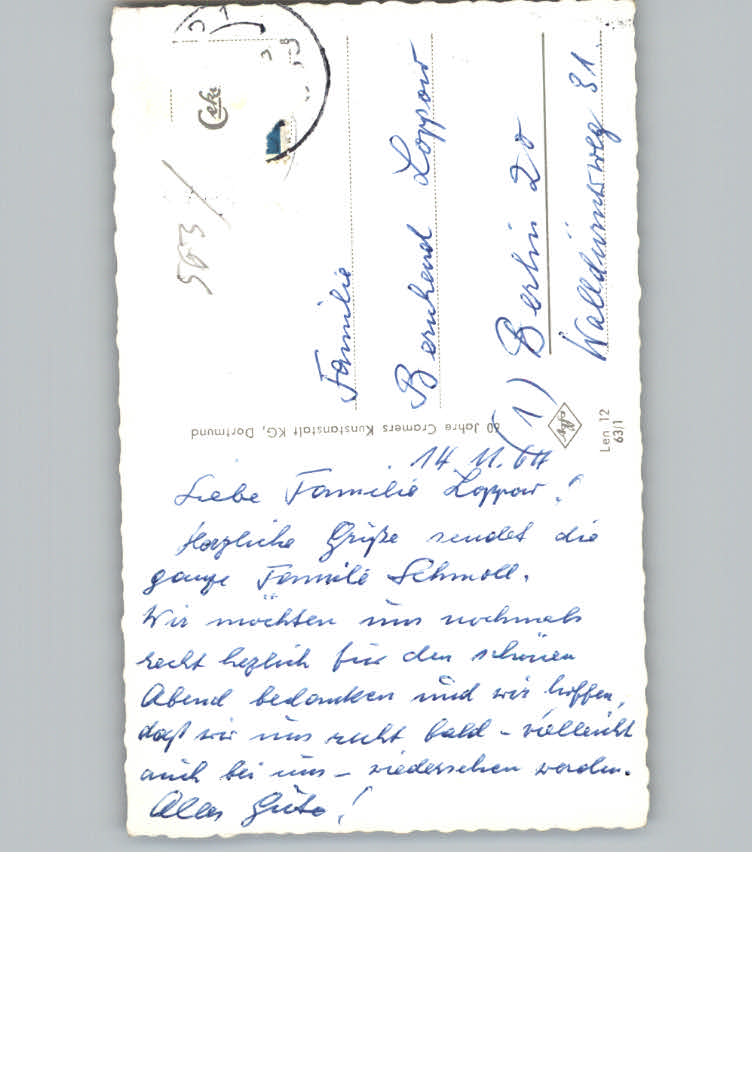 Ceka
563/
Familie
Bernhard Loppow
(1) Berlin 20
Walldürnerweg 31
60 Jahre Cramers Kunstanstalt KG, Dortmund
Len 12
63/1
14.11.64
Liebe Familie Loppow!
Herzliche Grüße sendet die
ganze Familie Schmoll.
Wir möchten uns nochmals
recht herzlich für den schönen
Abend bedanken und wir hoffen,
daß wir uns recht bald – vielleicht
auch bei uns – wiedersehen werden.
Alles Gute!